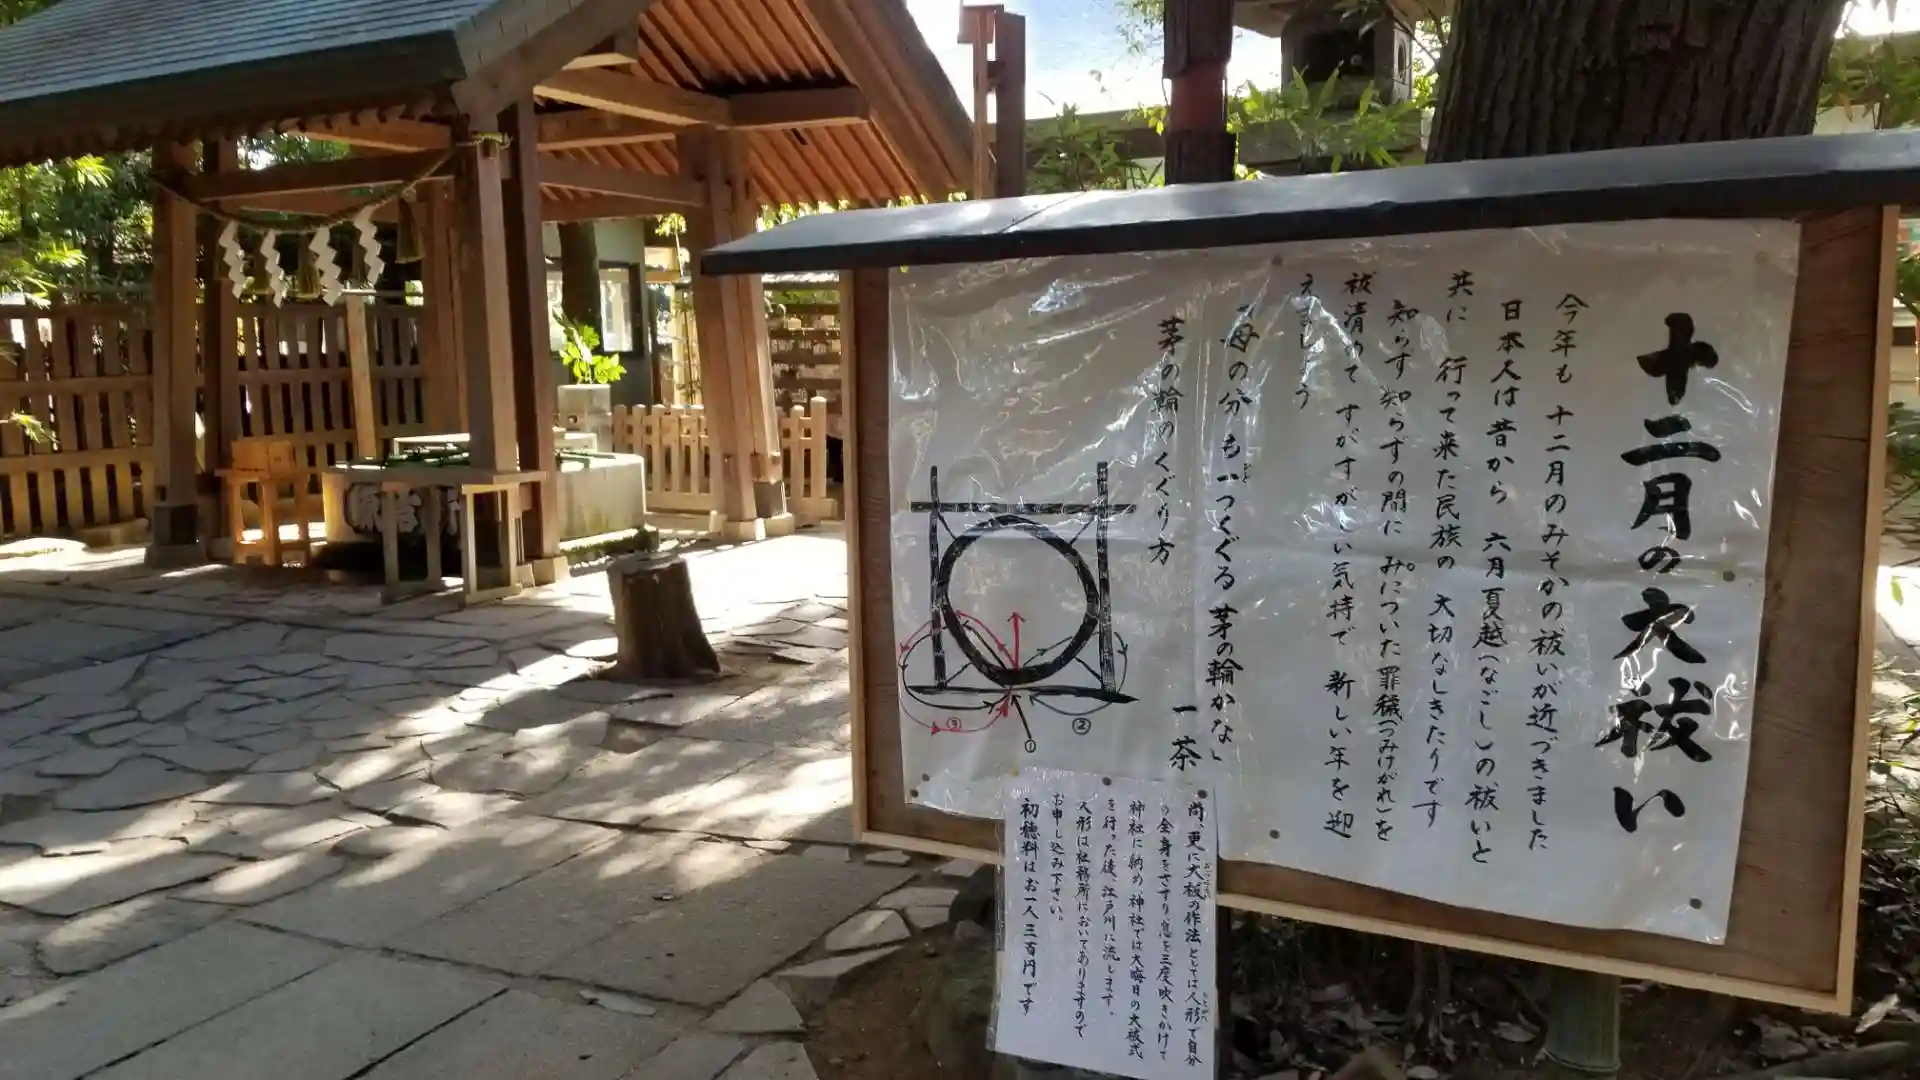 十二月の大祓い
今年も 十二月のみそかの祓いが近づきました
日本人は昔から 六月夏越(なごし)の祓いと
共に 行って来た民族の 大切なしきたりです
知らず知らずの間に みについた罪穢(つみけがれ)を
祓清めて すがすがしい気持で 新しい年を迎
えましょう
「母の分も一つくぐる 茅の輪かな」
一茶
茅の輪のくぐり方
①
②
③
尚、更に大祓の作法としては人形で自分
の全身をさすり、息を三度吹きかけて
神社に納め、神社では大晦日の大祓式
を行った後、江戸川に流します。
人形は社務所においてありますので
お申し込み下さい。
初穂料はお一人三百円です